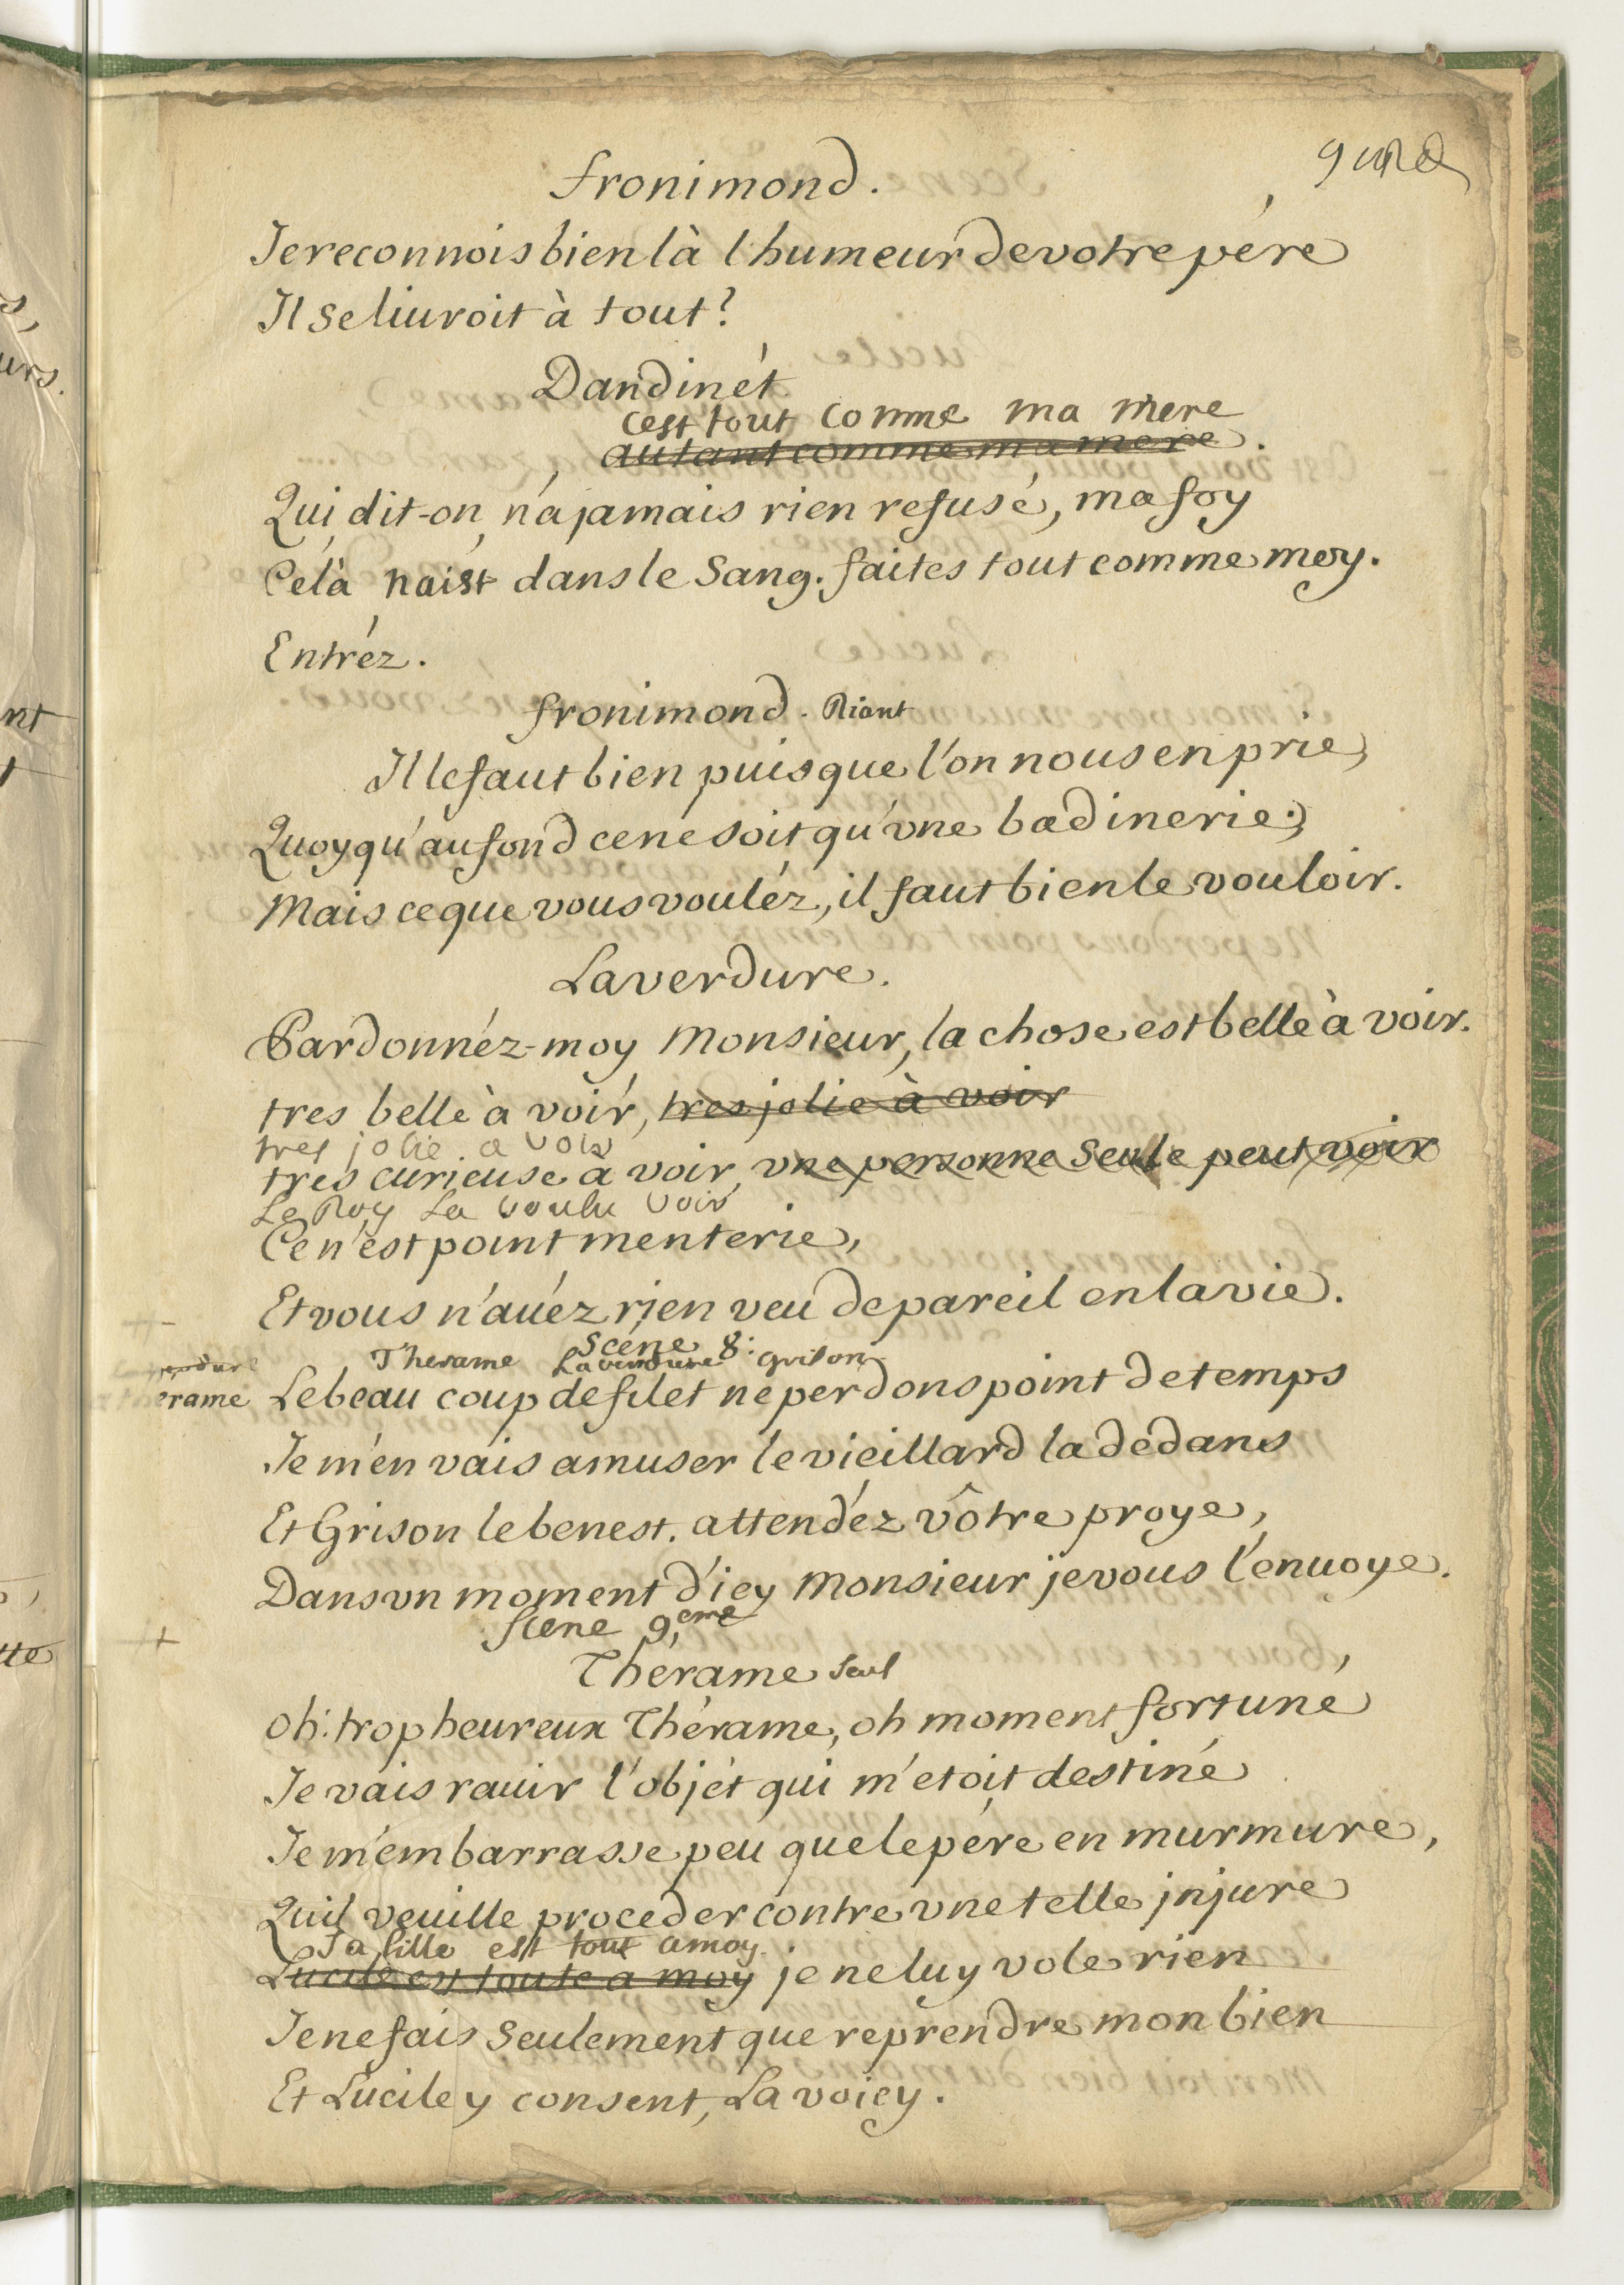 fronimond.
Je reconnois bien là l'humeur de votre pére
Il se liuroit à tout?
Dandinét
cest tout comme ma mere
autant comme ma mere.
Qui dit-on n'a jamais rien refusé, ma foy
Céla naist dans le Sang. faites tout comme moy.
Entréz.
fronimond. Riant
Il le faut bien puisque l'on nous en prie,
Quoy qu'au fond ce ne soit qu'vne badinerie;
Mais ce que vous vouléz, il faut bien le vouloir.
Laverdure.
Pardonnéz-moy Monsieur, la chose est belle à voir.
tres belle à voir, tres jolie à voir
tres jolie a voir
tres curieuse a voir, vne personne seule peut voir
Le Roy La voulu voir
Ce n'est point menterie,
Et vous n'auéz rien veu de pareil en la vie.
Scéne 8:
Therame Laverdure grison
erame Le beau coup de filet ne perdons point de temps
Je m'en vais amuser le vieillard la dedans
Et Grison le benest. attendéz vôtre proye,
Dans vn moment d'icy Monsieur je vous l'enuoye.
Scene 9eme
Thérame seul
Oh! trop heureux Thérame, oh moment fortuné
Je vais rauir l'objét qui m'etoit destiné
Je m'embarrasse peu que le pére en murmure,
Quil veuille proceder contre vne telle injure
Sa fille est tout amoy
Lucile est toute a moy je ne luy vole rien
Je ne fais Seulement que reprendre mon bien
Et Lucile y consent, La voicy.